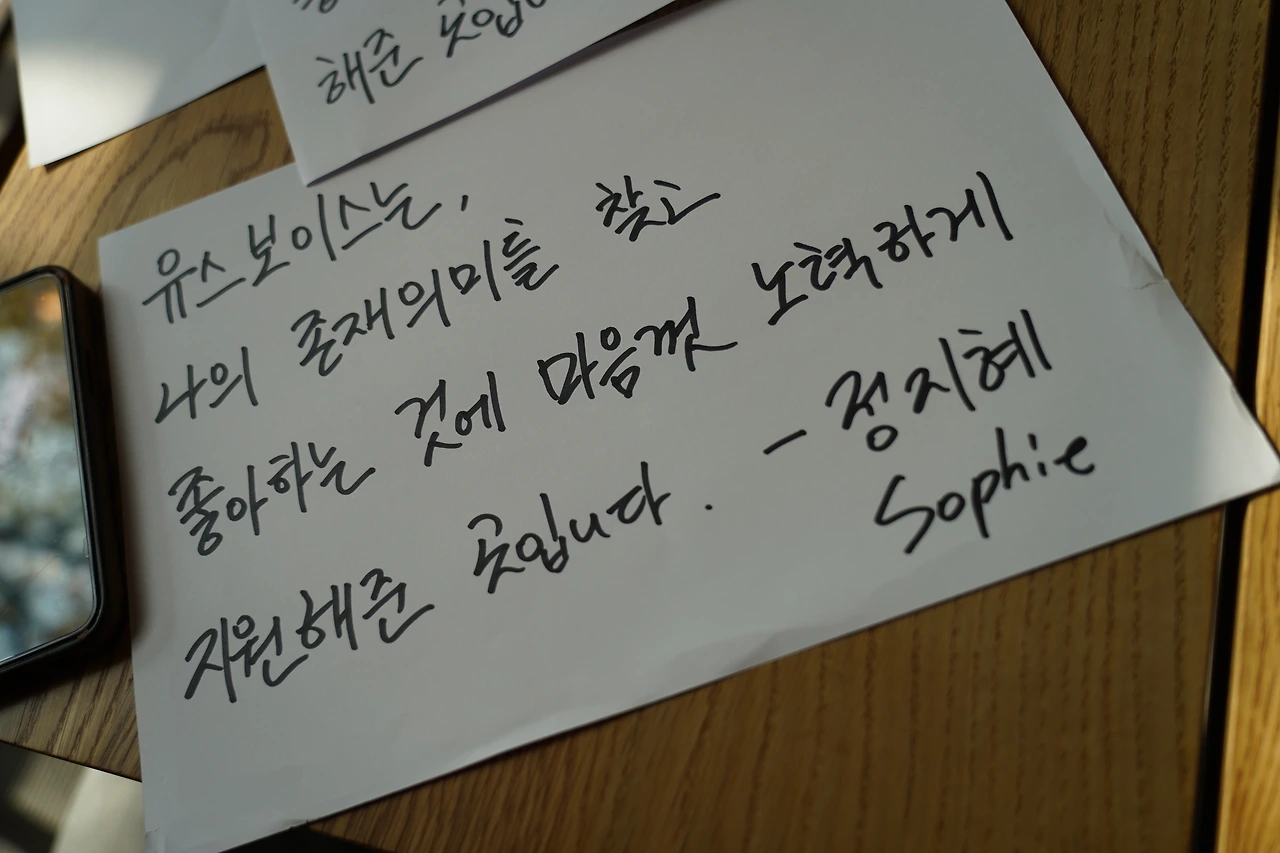 해준 곳입니
유스보이스는,
나의 존재의미를 찾고
좋아하는 것에 마음껏 노력하게
지원해준 곳입니다.
- 정지혜
Sophie